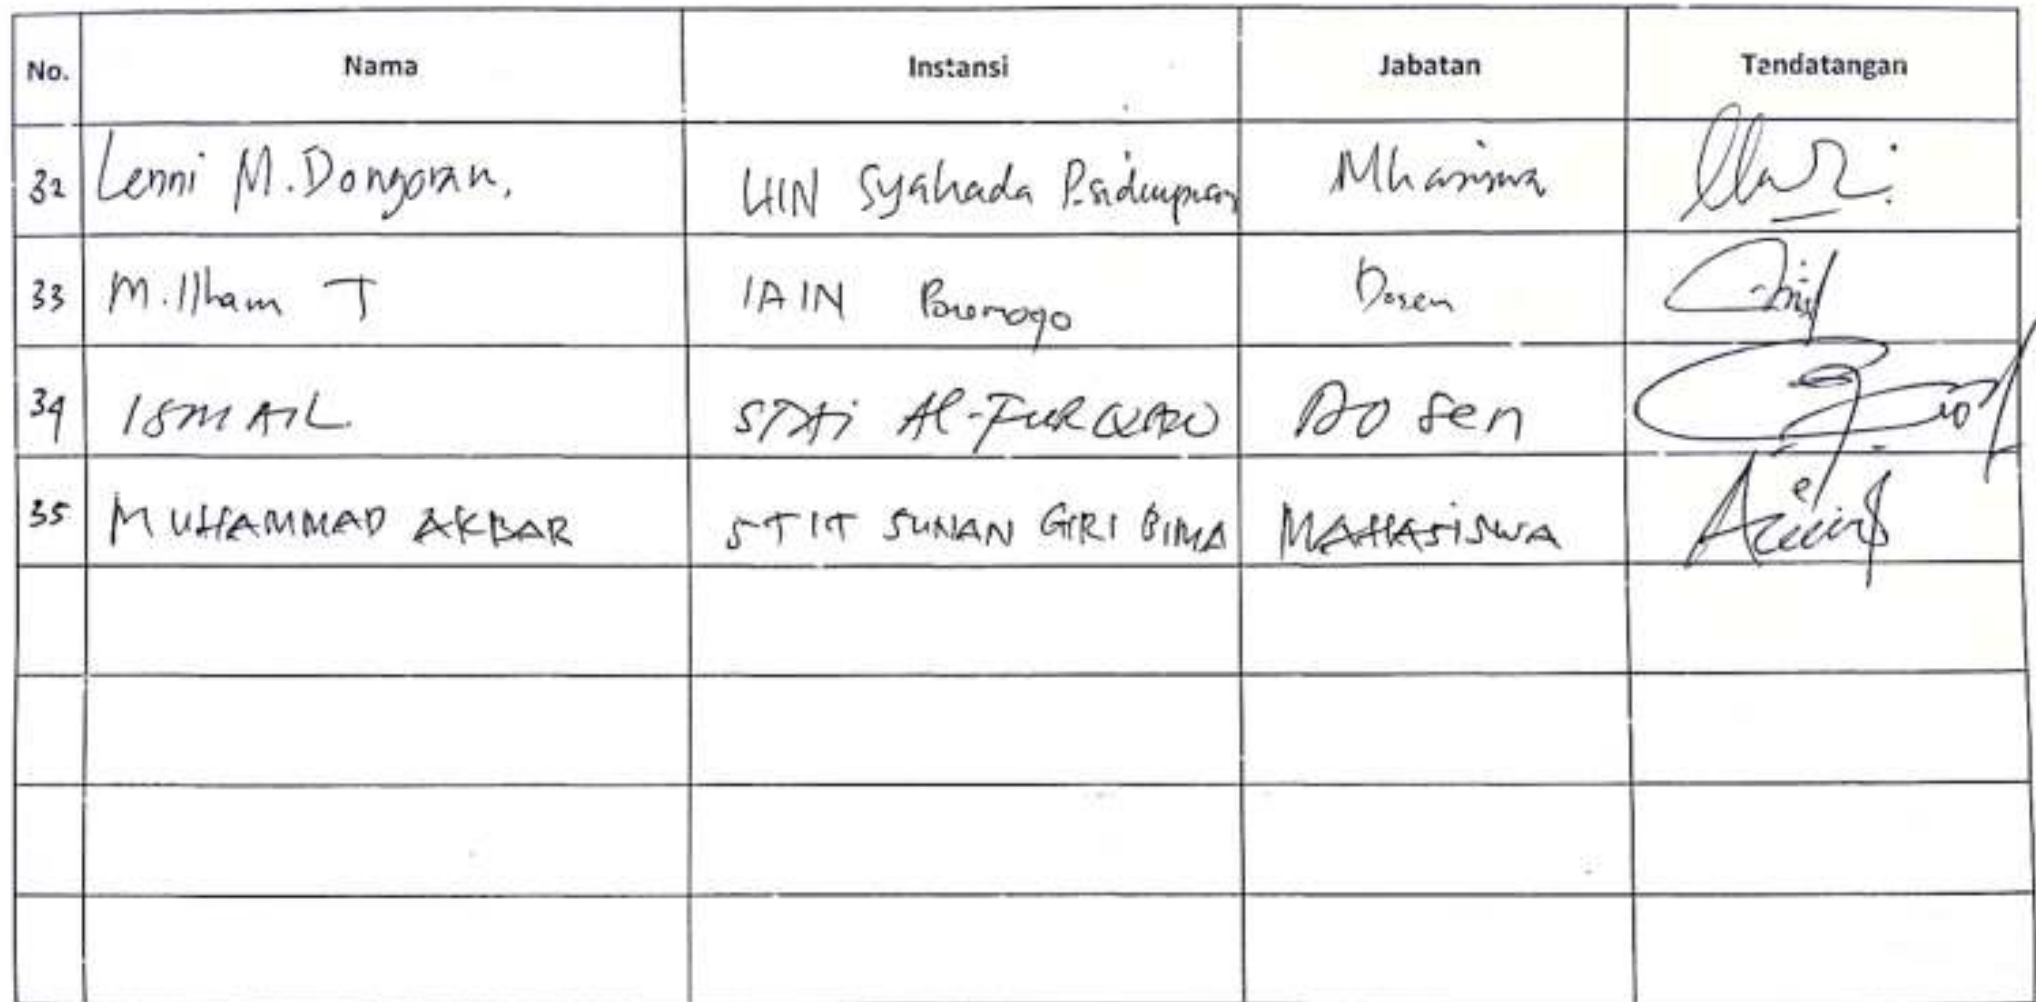 No. Nama Instansi Jabatan Tendatangan
32 Lenni M. Dongoran. UIN Syahada P.sidimpuan Mhasiswa
33 M. Ilham T IAIN Ponorogo Dosen
34 ISMAIL STAi Al-FURQAN DOsen
35 MUHAMMAD AKBAR STIT SUNAN GIRI BIMA MAHASiSWA